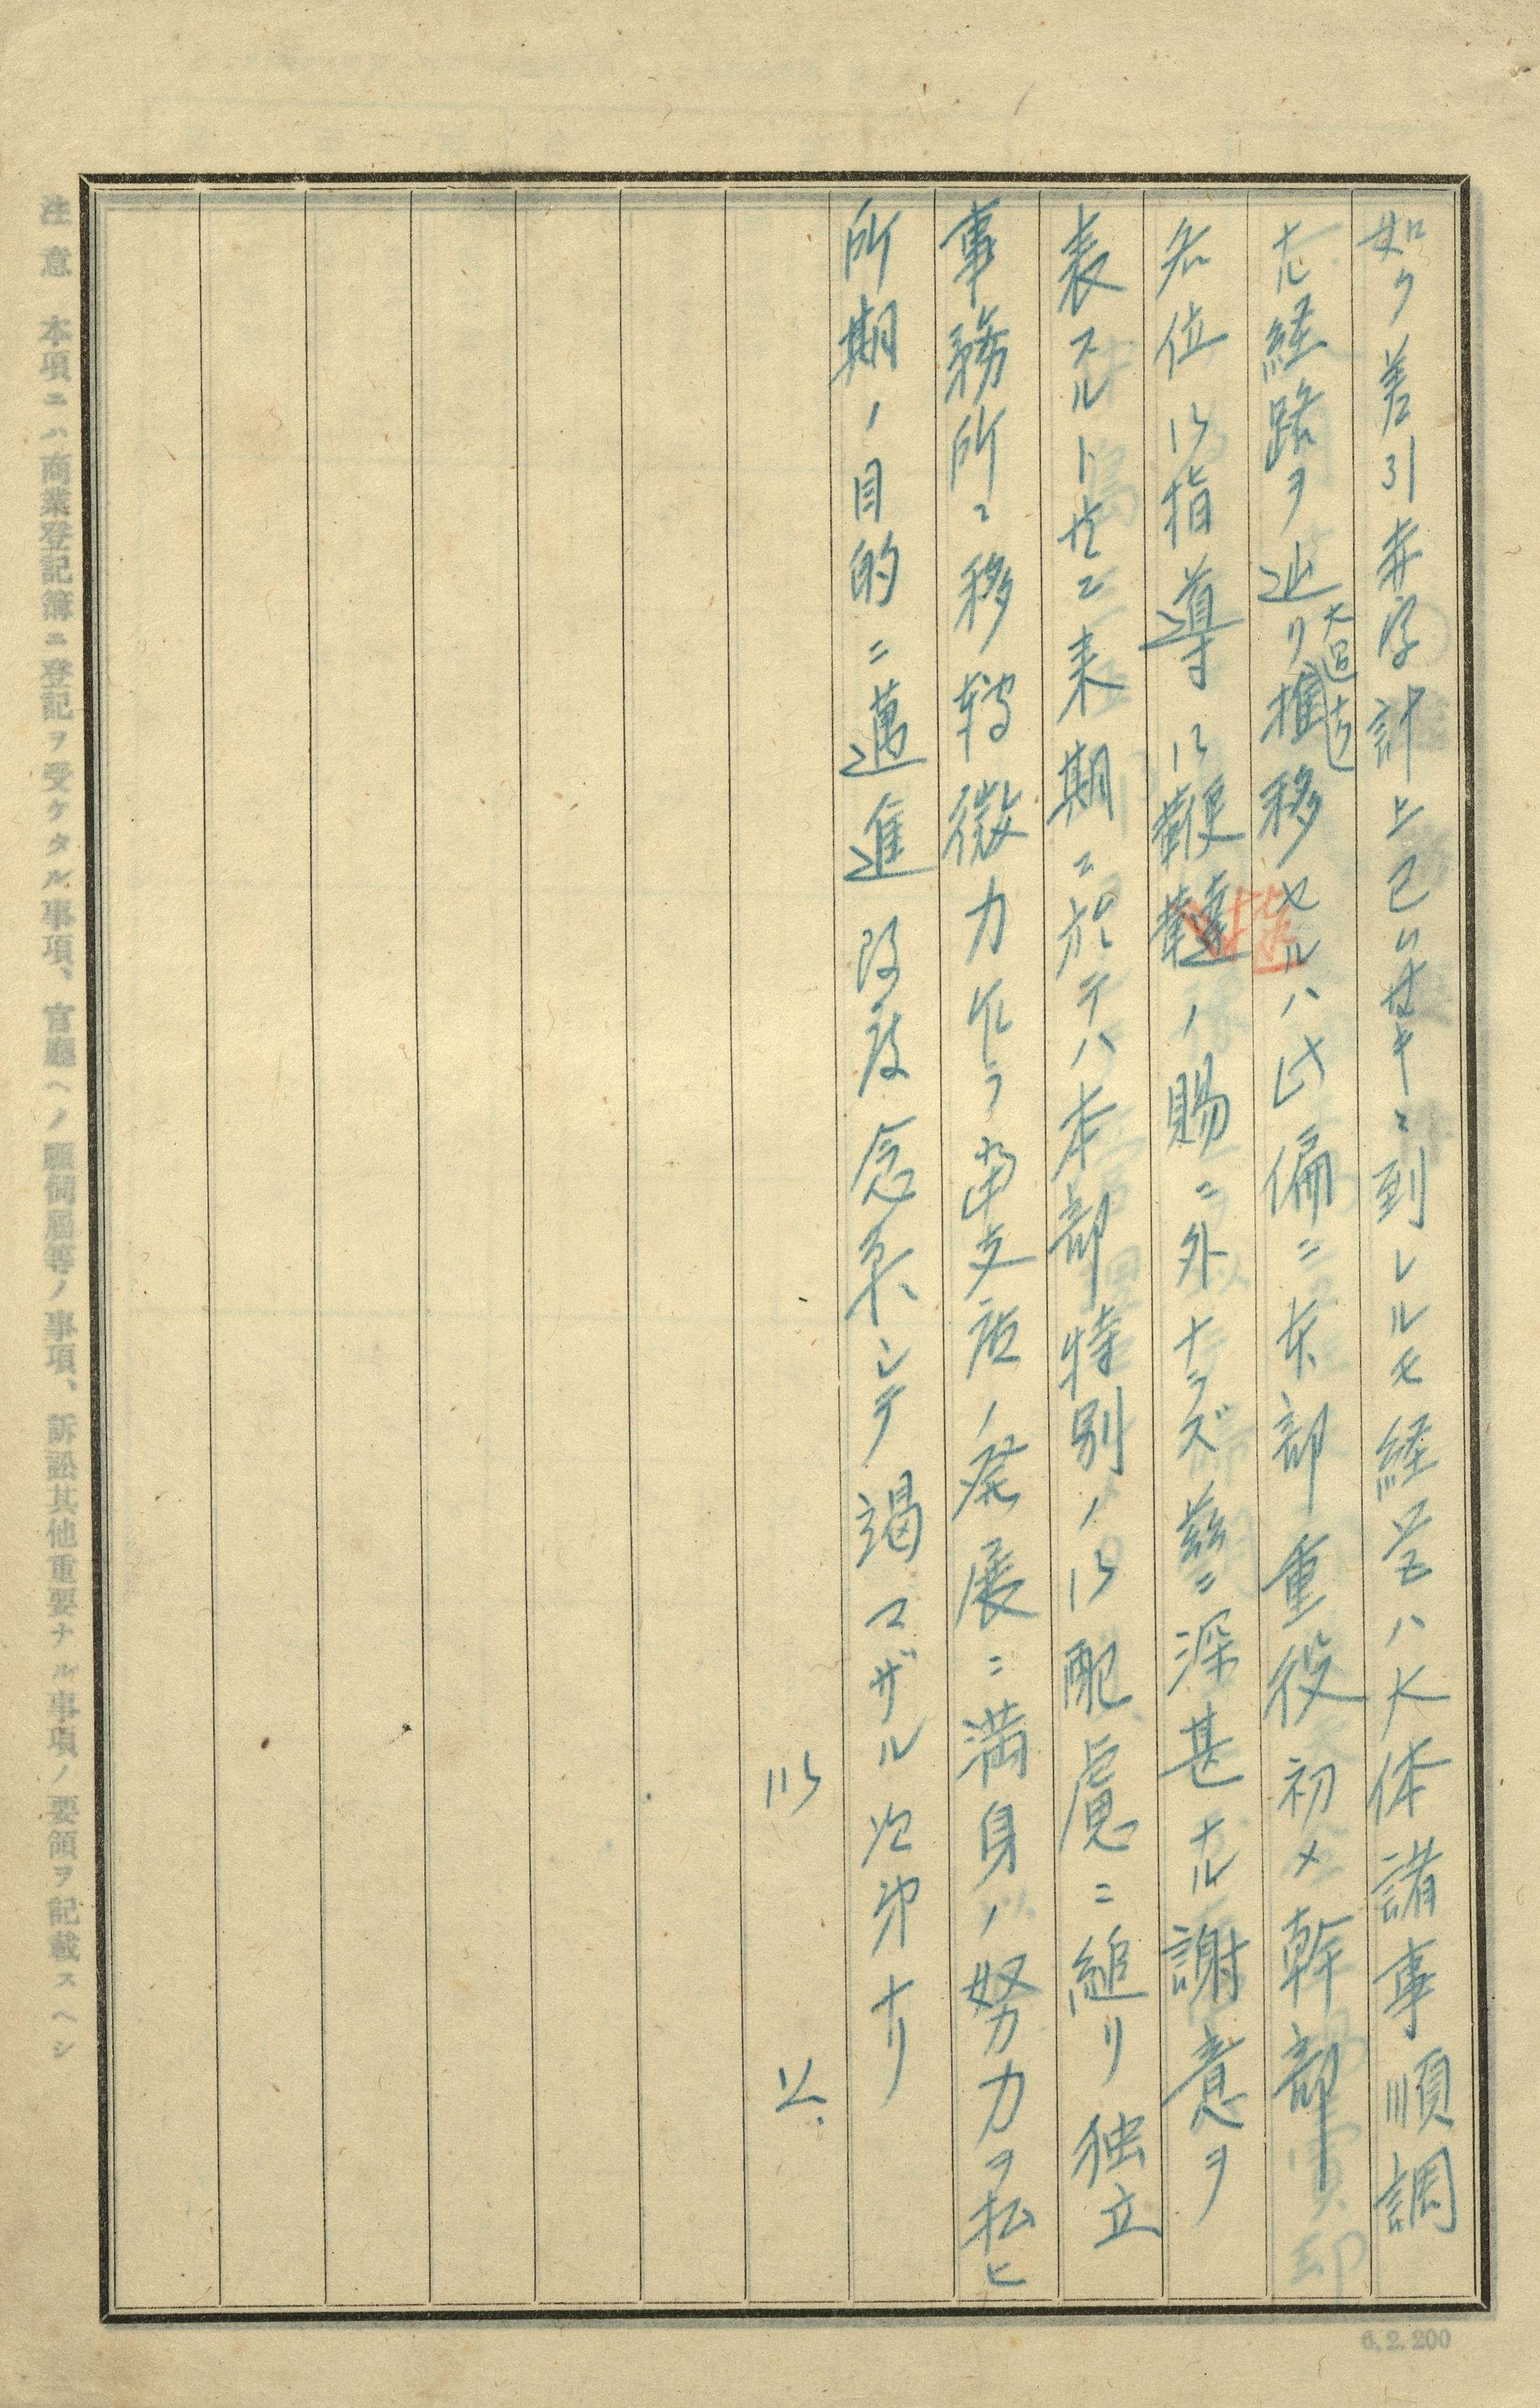 如ク差引赤字計上已ムナキニ到レルモ経営ハ大体諸事順調
ナル経路ヲ辿リ大過ナク推移セルハ此偏ニ本部重役初メ幹部
各位ノ御指導御鞭撻ノ賜ニ外ナラズ茲ニ深甚ナル謝意ヲ
表スルト共ニ来期ニ於テハ本部特別ノ御配慮ニ縋リ独立
事務所ニ移転微力乍ラ当支店ノ発展ニ満身ノ努力ヲ払ヒ
所期ノ目的ニ邁進 念禿シテ竭マザル次第ナリ
以上
注意 本項ニハ商業登記簿ニ登記ヲ受ケタル事項、官廳ヘノ願伺屆等ノ事項、訴訟其他重要ナル事項ノ要領ヲ記載スヘシ
6.2.200